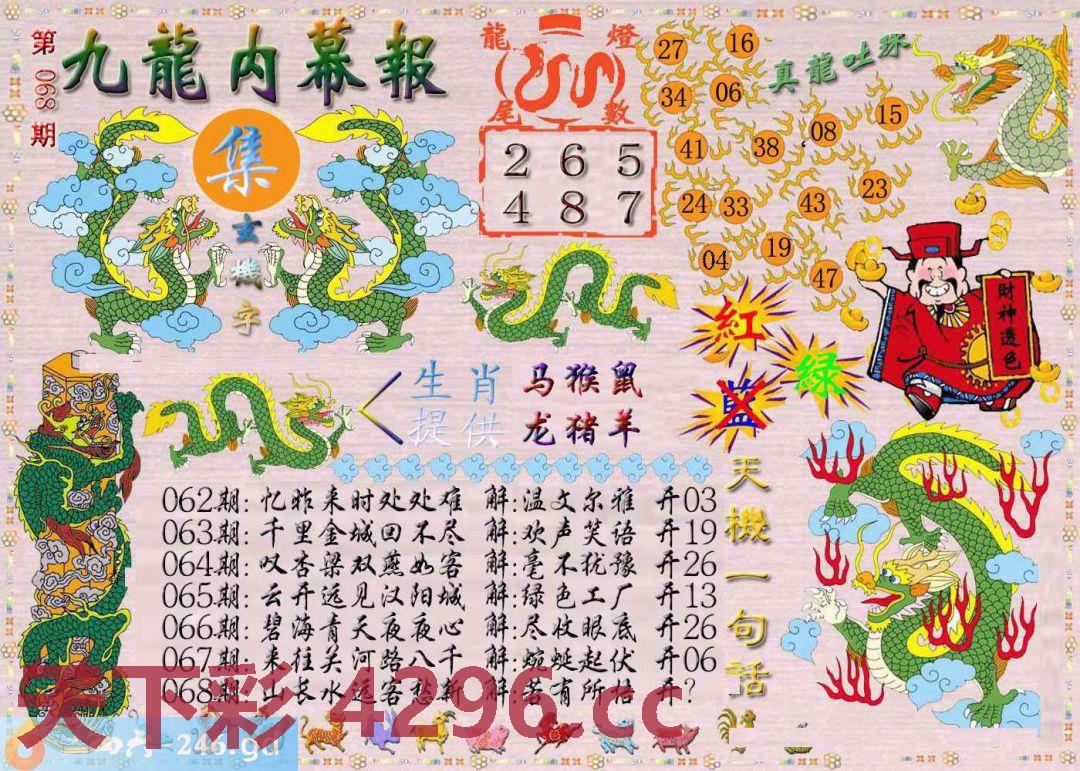 第068期
九龍内幕報
集
玄機字
龍燈
尾數
2 6 5
4 8 7
真龍吐珠
27 16
34 06
41 38 08 15
24 33 43 23
04 19 47
財神透色
紅
蓝
绿
生肖提供
马猴鼠
龙猪羊
天機一句话
062期:忆昨来时处处难 解:温文尔雅 开03
063期:千里金城回不尽 解:欢声笑语 开19
064期:叹杏梁双燕如客 解:毫不犹豫 开26
065期:云开远见汉阳城 解:绿色工厂 开13
066期:碧海青天夜夜心 解:尽收眼底 开26
067期:来往关河路八千 解:蜿蜒起伏 开06
068期:山长水远客愁新 解:若有所悟 开?
天下彩 4296.cc
=246.gd